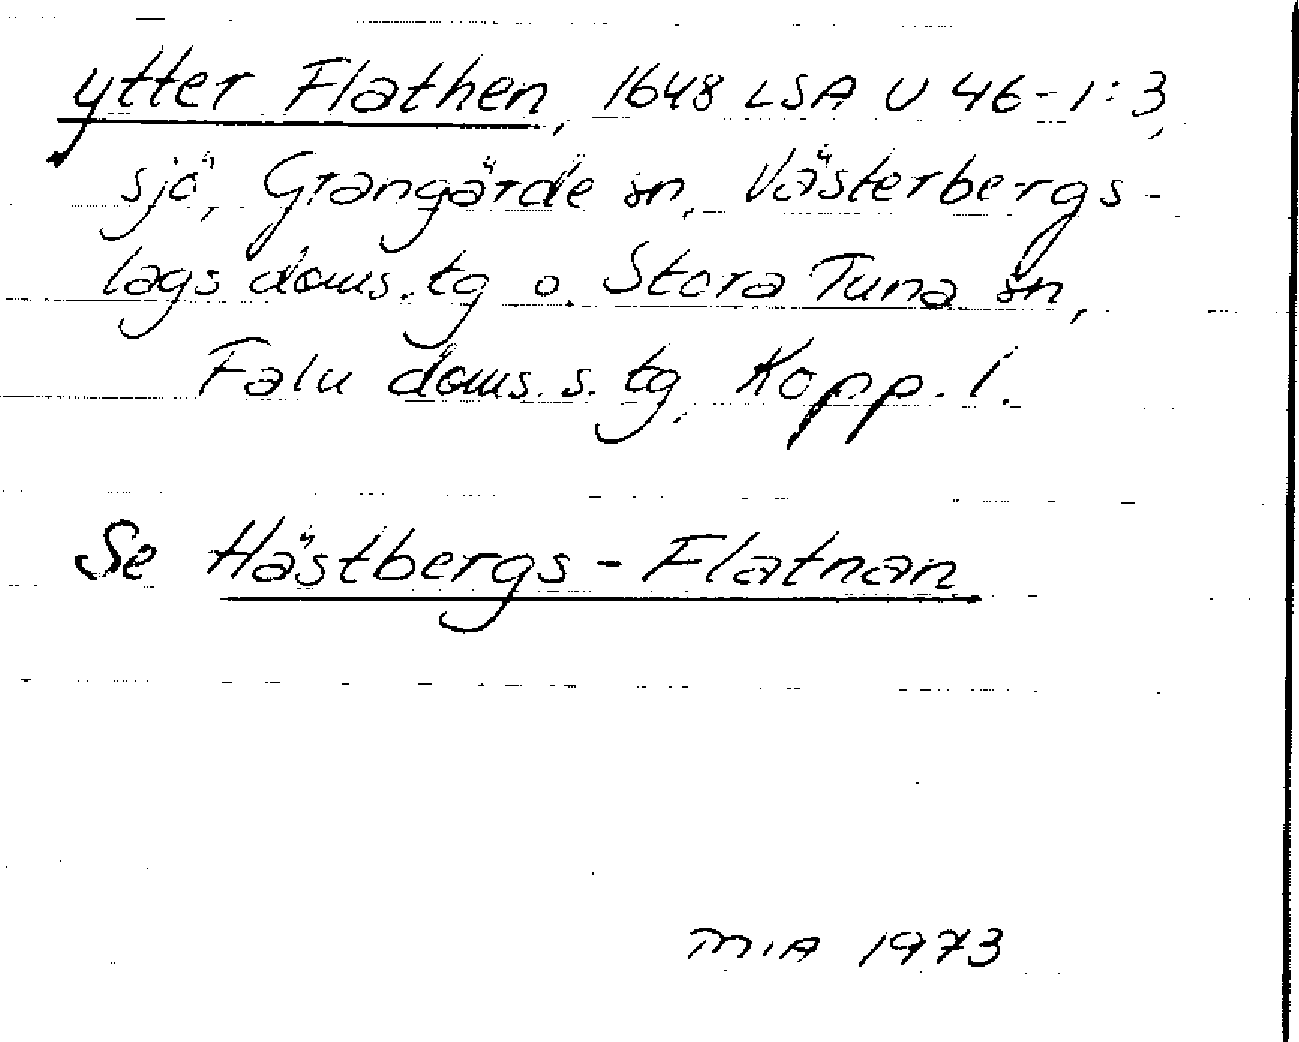 ytter Flathen, 1648 LSA U 46-1:3,
sjö, Grangärde sn, Västerbergs-
lags doms. tg o. Stora Tuna sn,
Falu doms. s. tg, Kopp. l.
Se Hästbergs-Flatnan
MIA 1973